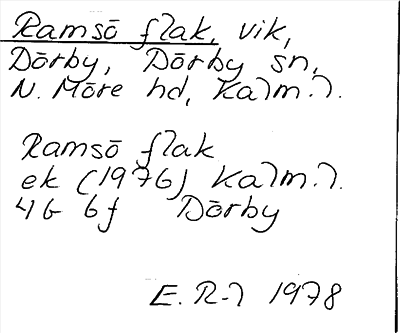 Ramsö flak, vik,
Dörby, Dörby sn,
N. Möre hd, Kalm. l.
Ramsö flak
ek (1976) Kalm. l.
4G 6f Dörby
E. R-l 1978